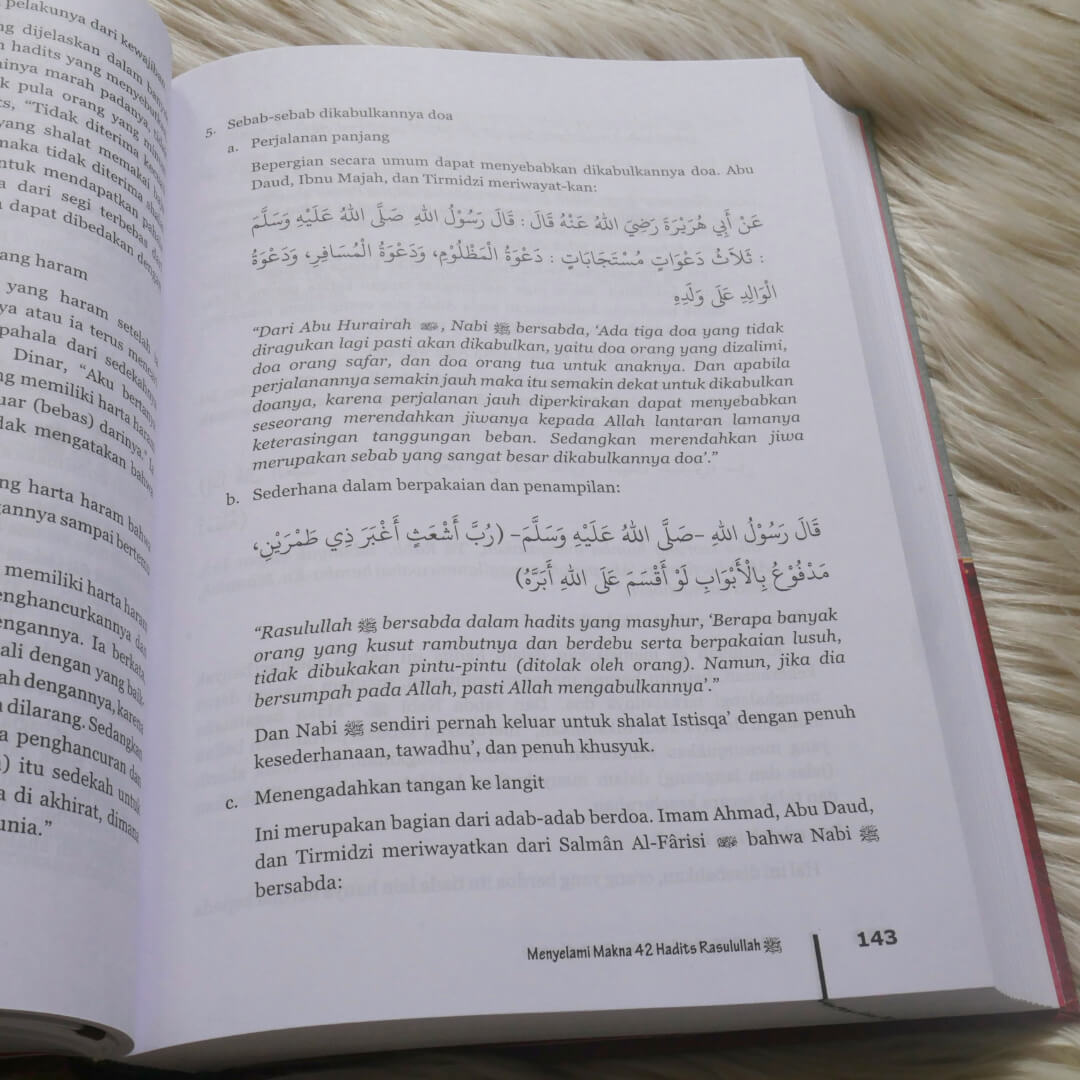 pelakunya dari kewajiban
dijelaskan dalam
hadits yang menyebutkan
marah padanya,
pula orang yang
"Tidak diterima
yang shalat memakai
maka tidak diterima
untuk mendapatkan
dari segi terbebas
dapat dibedakan dengan
yang haram
yang haram setelah
atau ia terus
pahala dari sedekahnya
Dinar, "Aku bertanya
memiliki harta haram
(bebas) darinya." Ia
mengatakan bahwa
harta haram bahwa
sampai bertemu
memiliki harta haram
menghancurkannya dan
Ia berkata,
kembali dengan yang baik.
dengannya, karena
dilarang. Sedangkan
penghancuran dan
itu sedekah untuk
di akhirat, dimana
dunia."
5. Sebab-sebab dikabulkannya doa
a. Perjalanan panjang
Bepergian secara umum dapat menyebabkan dikabulkannya doa. Abu
Daud, Ibnu Majah, dan Tirmidzi meriwayat-kan:
عَنْ أَبِي هُرَيْرَةَ رَضِيَ اللهُ عَنْهُ قَالَ : قَالَ رَسُوْلُ اللهِ صَلَّى اللهُ عَلَيْهِ وَسَلَّمَ
: ثَلَاثُ دَعْوَاتٍ مُسْتَجَابَاتٍ : دَعْوَةُ الْمَظْلُوْمِ، وَدَعْوَةُ الْمُسَافِرِ، وَدَعْوَةُ
الْوَالِدِ عَلَى وَلَدِهِ
"Dari Abu Hurairah ؓ, Nabi ﷺ bersabda, 'Ada tiga doa yang tidak
diragukan lagi pasti akan dikabulkan, yaitu doa orang yang dizalimi,
doa orang safar, dan doa orang tua untuk anaknya. Dan apabila
perjalanannya semakin jauh maka itu semakin dekat untuk dikabulkan
doanya, karena perjalanan jauh diperkirakan dapat menyebabkan
seseorang merendahkan jiwanya kepada Allah lantaran lamanya
keterasingan tanggungan beban. Sedangkan merendahkan jiwa
merupakan sebab yang sangat besar dikabulkannya doa'."
b. Sederhana dalam berpakaian dan penampilan:
قَالَ رَسُوْلُ اللهِ -صَلَّى اللهُ عَلَيْهِ وَسَلَّمَ- (رُبَّ أَشْعَثَ أَغْبَرَ ذِي طَمْرَيْنِ،
مَدْفُوْعُ بِالْأَبْوَابِ لَوْ أَقْسَمَ عَلَى اللهِ أَبَرَّهُ)
"Rasulullah ﷺ bersabda dalam hadits yang masyhur, 'Berapa banyak
orang yang kusut rambutnya dan berdebu serta berpakaian lusuh,
tidak dibukakan pintu-pintu (ditolak oleh orang). Namun, jika dia
bersumpah pada Allah, pasti Allah mengabulkannya'."
Dan Nabi ﷺ sendiri pernah keluar untuk shalat Istisqa' dengan penuh
kesederhanaan, tawadhu', dan penuh khusyuk.
c. Menengadahkan tangan ke langit
Ini merupakan bagian dari adab-adab berdoa. Imam Ahmad, Abu Daud,
dan Tirmidzi meriwayatkan dari Salmân Al-Fârisi ؓ bahwa Nabi ﷺ
bersabda:
Menyelami Makna 42 Hadits Rasulullah ﷺ 143